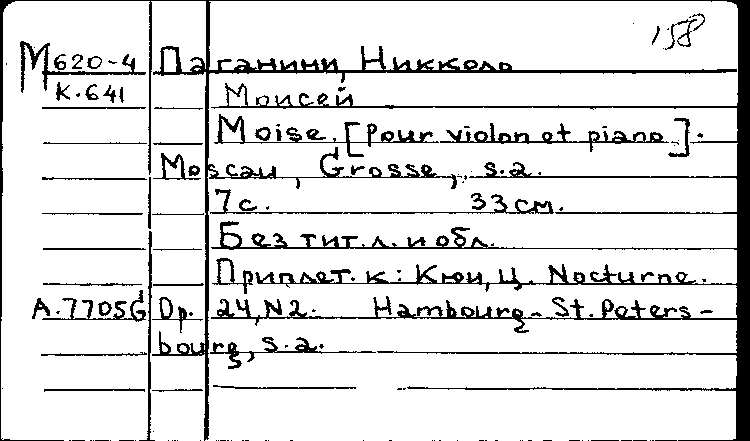 158
М620-4 Паганини, Никколо
К.641 Моисей
Moise. [Pour violon et piano].
Moscau, Grosse, s.a.
7с. 33см.
Без тит.л. и обл.
Приплет. к: Кюи, Ц. Nocturne.
А.7705G Op. 24, N2. Hambourg-St. Peters-
bourg, s.a.